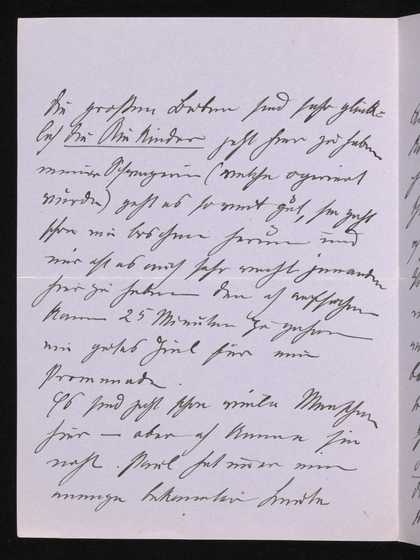 Die großen Buben sind sehr glück-
lich die Kinder jetzt hier zu haben
meiner Schwägerin (welche operiert
wurde) geht es so weit gut, sie geht
schon ein bischen herum und
mir ist es auch sehr recht jemanden
hier zu haben den ich aufsuchen
kann 25 Minuten zu gehen
ein gutes Ziel für eine
Promenade.
Es sind jetzt schon viele Menschen
hier – aber ich kenne sie
nicht. Paul hat immer eine
menge bekannte Leute